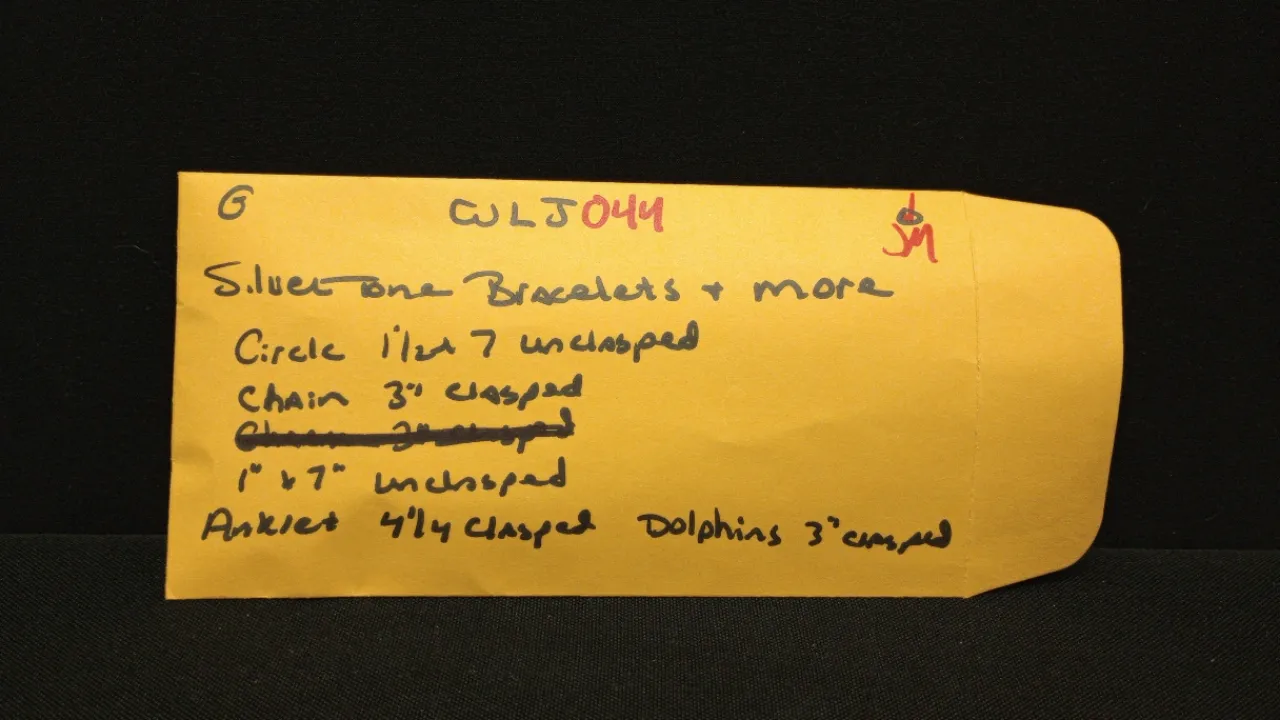 G CWLJ044 JM
Silvertone Bracelets + more
Circle 1 1/2 x 7 unclasped
Chain 3" clasped
Chain 3" clasped
1" x 7" unclasped
Anklet 4 1/4 clasped Dolphins 3" clasped